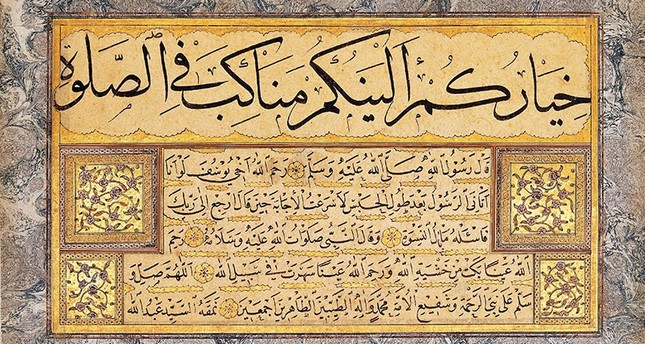 خِيَارُكُمْ أَلْيَنُكُمْ مَنَاكِبَ فِي الصَّلٰوةِ
قَالَ رَسُولُ اللهِ صَلَّى اللهُ عَلَيْهِ وَسَلَّمَ رَحِمَ اللهُ أَخِي يُوسُفَ لَوْ أَنَا
أَتَانِيَ الرَّسُولُ بَعْدَ طُولِ الْحَبْسِ لَأَسْرَعْتُ الْإِجَابَةَ حِينَ قَالَ ارْجِعْ إِلَى رَبِّكَ
فَاسْئَلْهُ مَا بَالُ النِّسْوَةِ وَقَالَ النَّبِيُّ صَلَوَاتُ اللهِ عَلَيْهِ وَسَلَامُهُ رَحِمَ
اللهُ عَيْنًا بَكَتْ مِنْ خَشْيَةِ اللهِ وَرَحِمَ اللهُ عَيْنًا سَهِرَتْ فِي سَبِيلِ اللهِ اَللّٰهُمَّ صَلِّ وَ
سَلِّمْ عَلَى نَبِيِّ الرَّحْمَةِ وَشَفِيعِ الْأُمَّةِ مُحَمَّدٍ وَاٰلِهِ الطَّيِّبِينَ الطَّاهِرِينَ أَجْمَعِينَ نَمَّقَهُ السَّيِّدُ عَبْدُ اللهِ